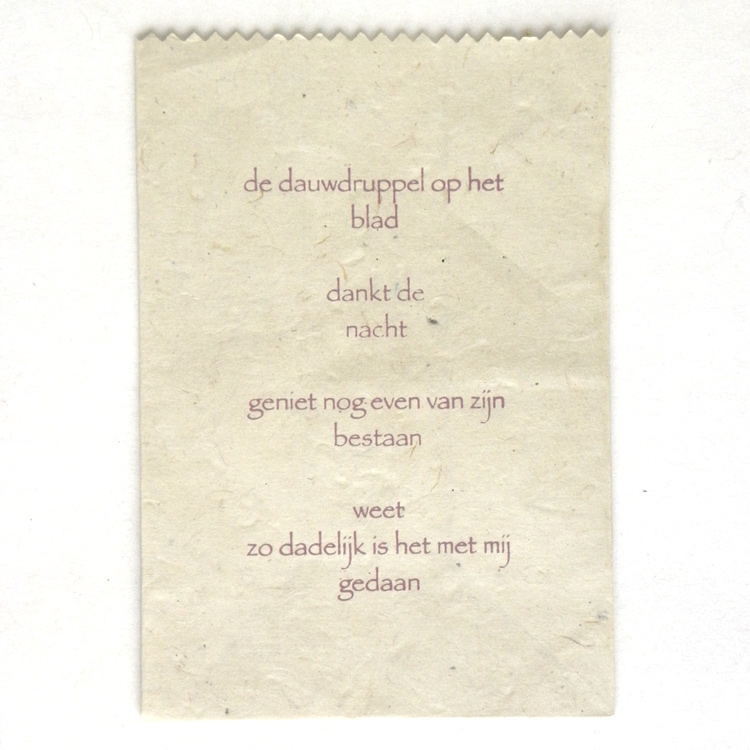 de dauwdruppel op het
blad
dankt de
nacht
geniet nog even van zijn
bestaan
weet
zo dadelijk is het met mij
gedaan